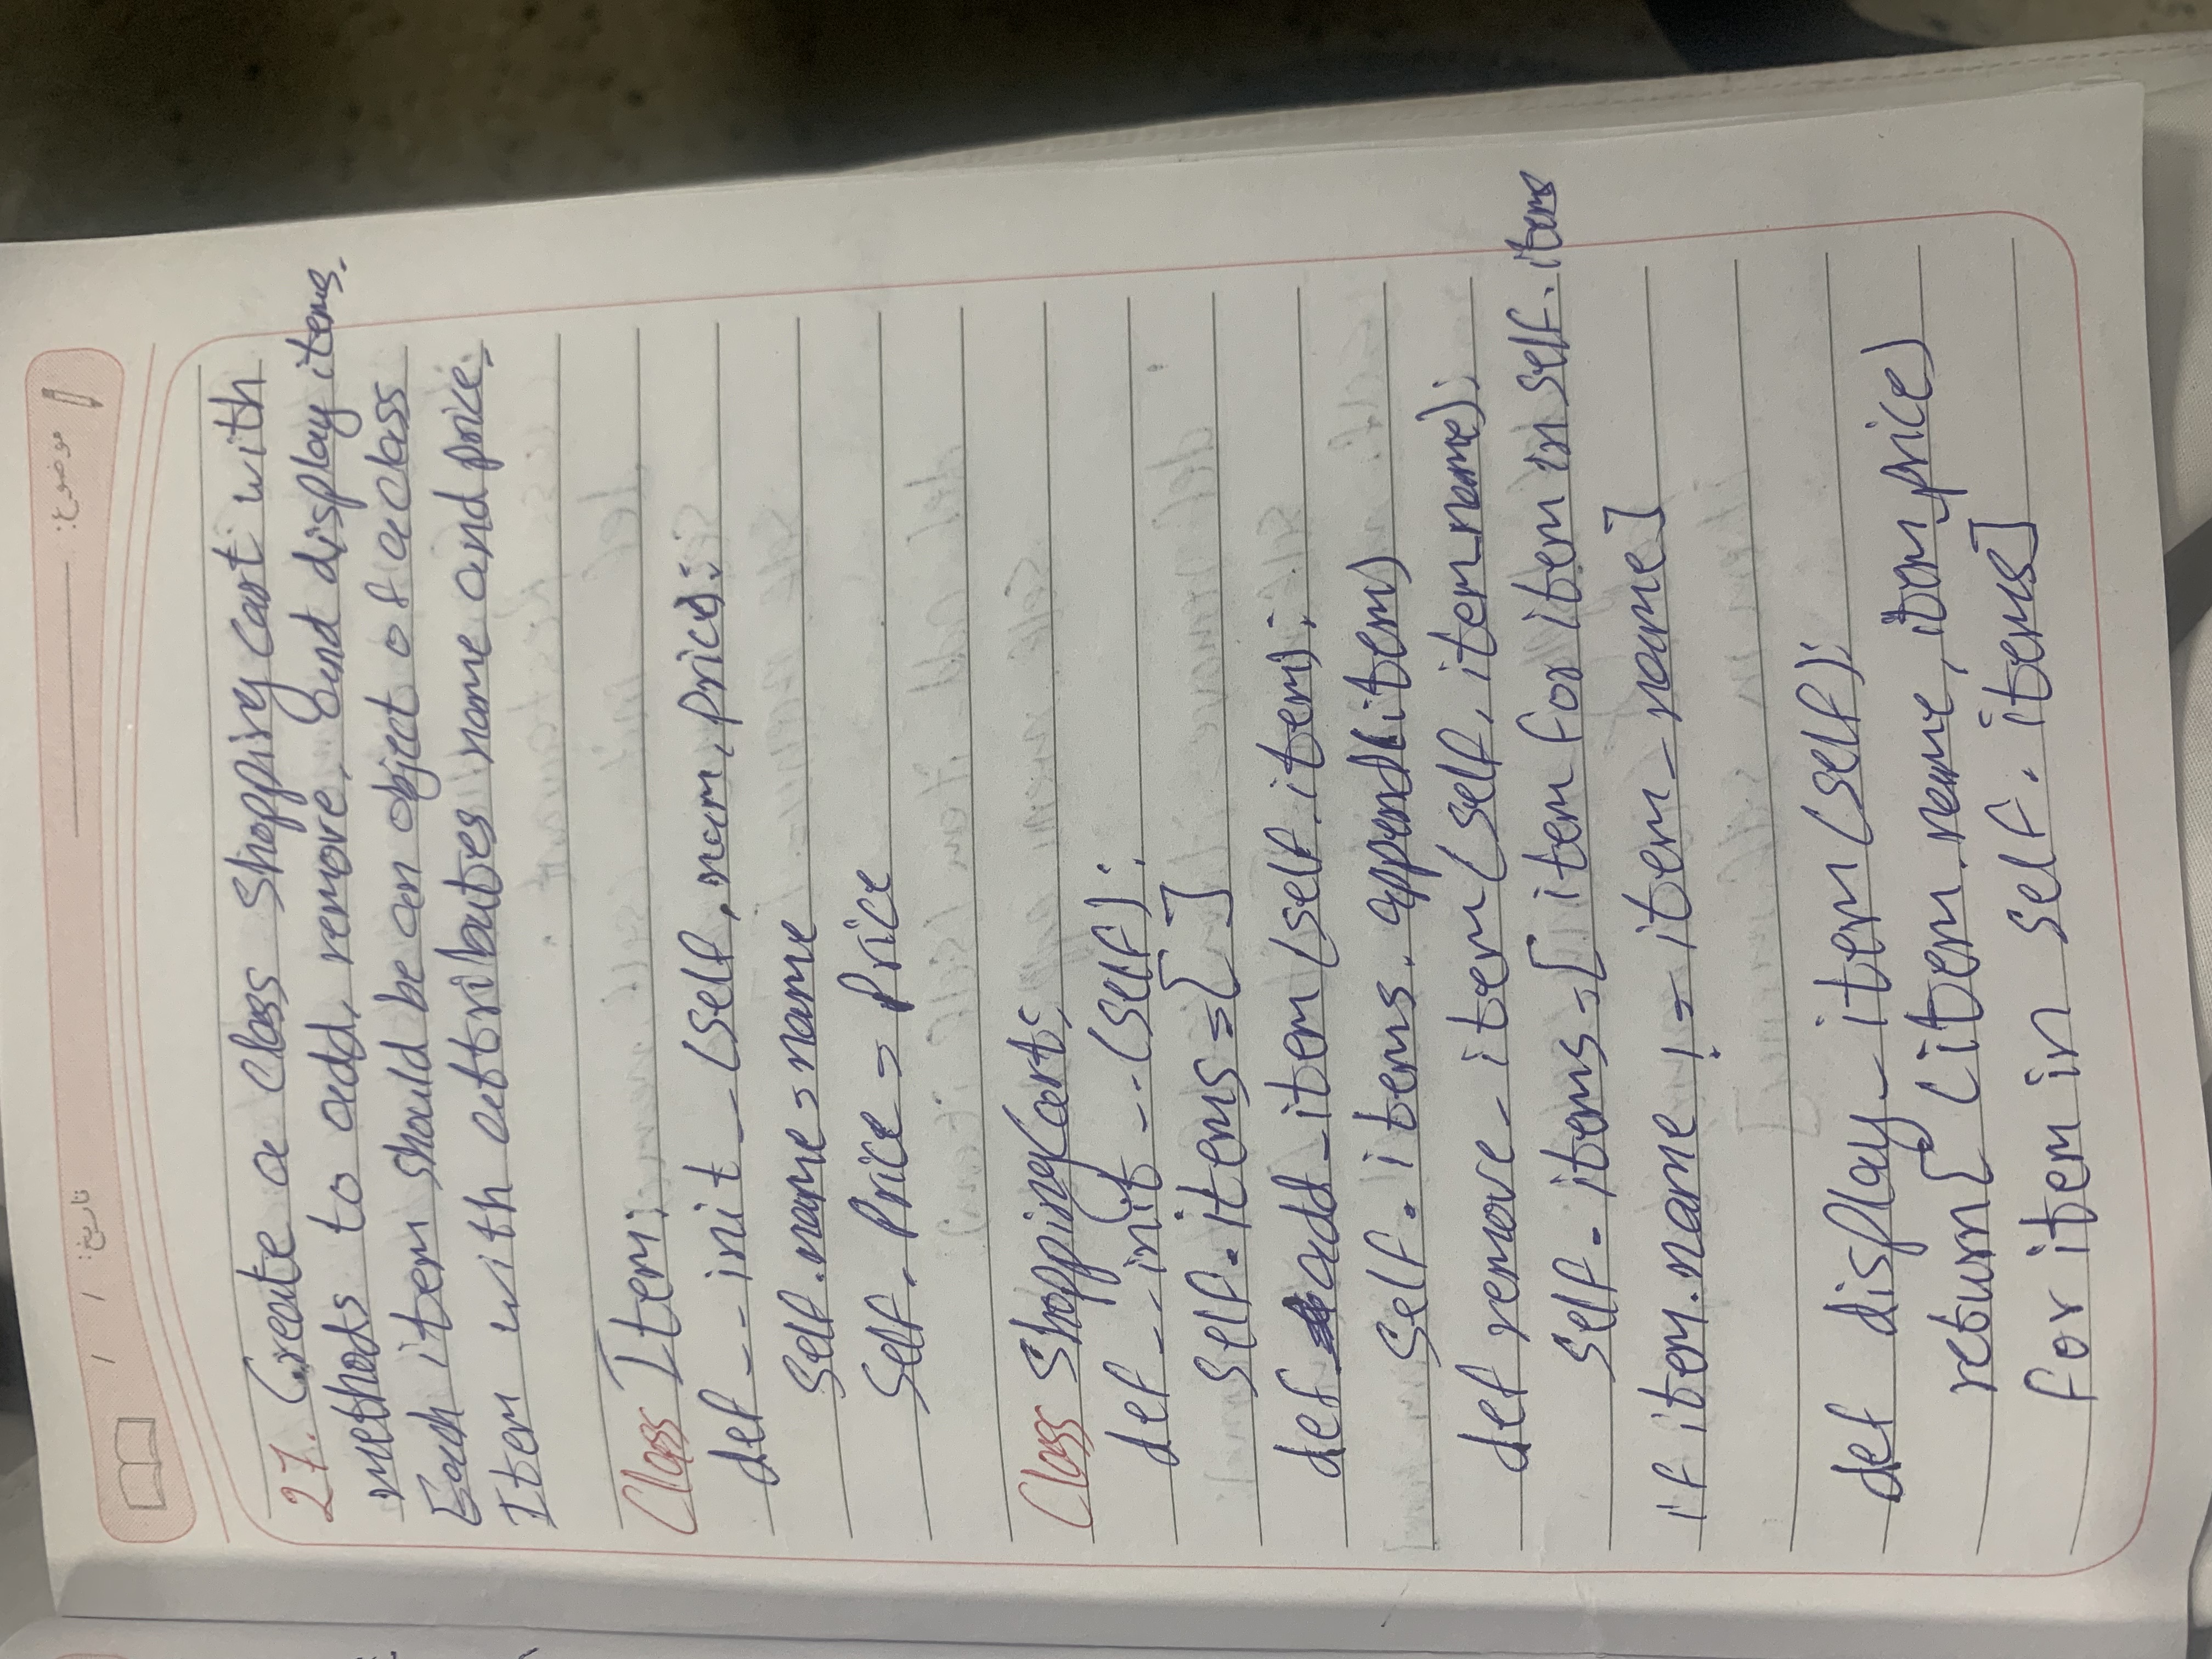 موضوع:
تاریخ: / /
27. Create a class shopping cart with
methods to add, remove, and display items.
Each item should be an object of a class
Item with attributes name and price.
Class Item:
def __init__(self, nam, price):
self.name = name
self. Price = Price
Class ShoppingCart:
def __init__(self):
self.items = [ ]
def add_item (self.item):
self.items.append(item)
def remove_item (self, item_name):
self.items = [ item for item in self.items
if item.name != item_name]
def display_item (self):
return [ (item.name, item.price)
for item in self.items]